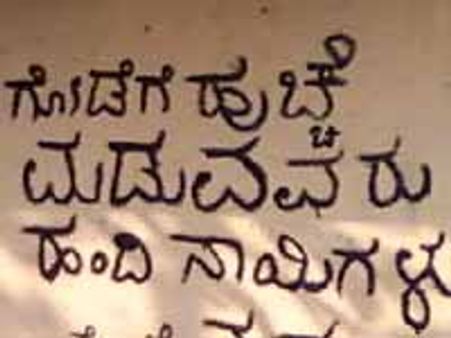 ಗೋಡೆಗೆ ಹುಚ್ಚೆ
ಮಡುವವರು
ಹಂದಿ ನಾಯಿಗಳು